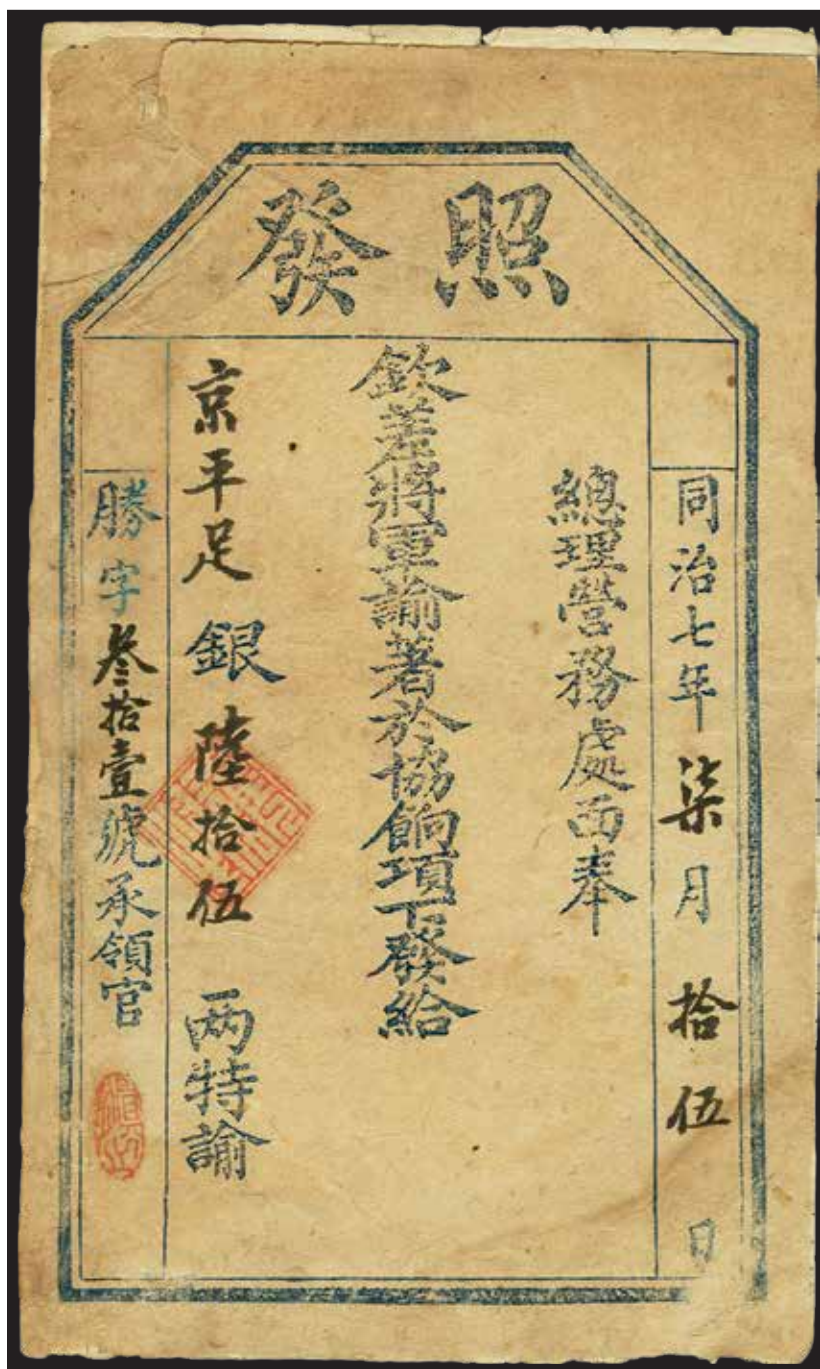 照發
同治七年柒月拾伍日
總理營務處面奉
欽差將軍諭著於協餉項下發給
京平足銀陸拾伍兩特諭
勝字叄拾壹號承領官